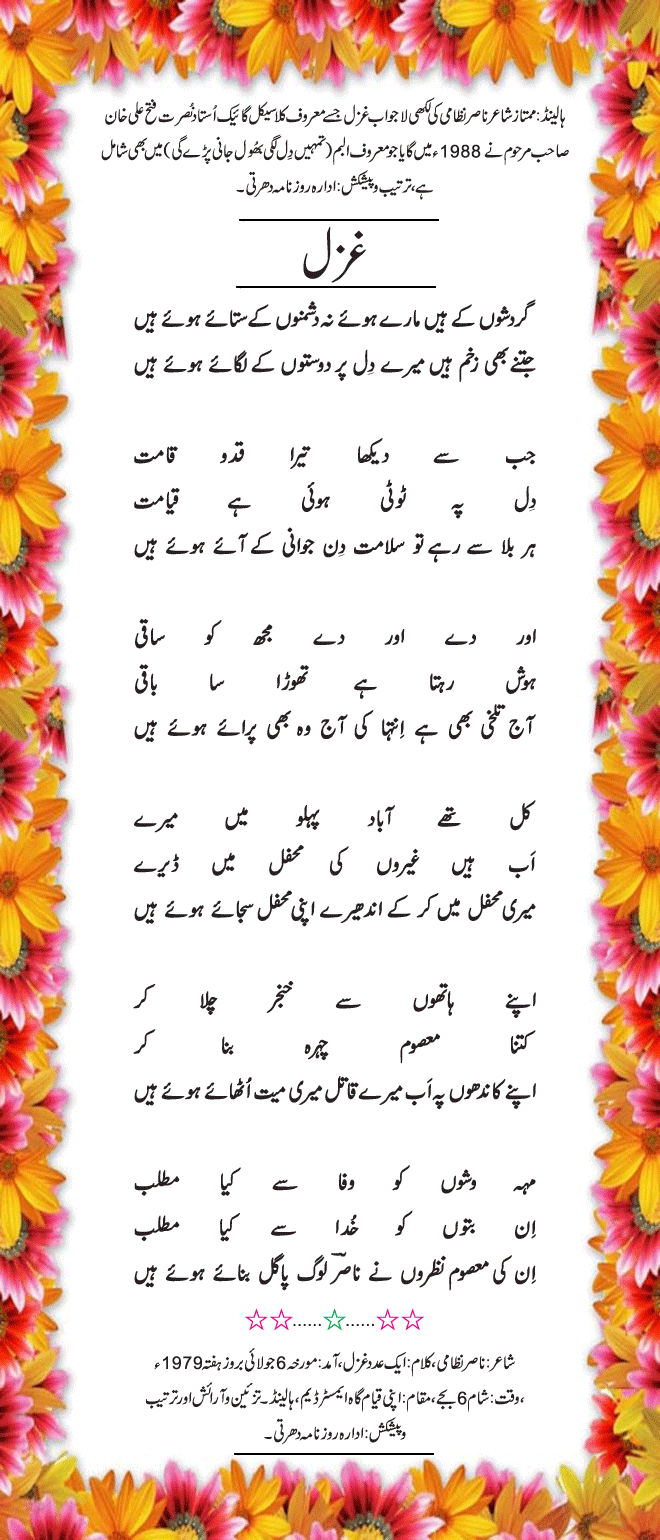 ہالینڈ: ممتاز شاعر ناصر نظامی کی لکھی لاجواب غزل جسے معروف کلاسیکل گائیک اُستاد نُصرت فتح علی خان
صاحب مرحوم نے 1988ء میں گایا جو معروف البم (تمہیں دِل لگی بھُول جانی پڑے گی) میں بھی شامل
ہے، ترتیب و پیشکش: ادارہ روزنامہ دھرتی۔
غزل
گردشوں کے ہیں مارے ہوئے نہ دشمنوں کے ستائے ہوئے ہیں
جتنے بھی زخم ہیں میرے دِل پر دوستوں کے لگائے ہوئے ہیں
جب سے دیکھا تیرا قدو قامت
دِل پہ ٹوٹی ہوئی ہے قیامت
ہر بلا سے رہے تو سلامت دِن جوانی کے آئے ہوئے ہیں
اور دے اور دے مجھ کو ساقی
ہوش رہتا ہے تھوڑا سا باقی
آج تلخی بھی ہے اِنتہا کی آج وہ بھی پرائے ہوئے ہیں
کل تھے آباد پہلو میں میرے
اَب ہیں غیروں کی محفل میں ڈیرے
میری محفل میں کر کے اندھیرے اپنی محفل سجائے ہوئے ہیں
اپنے ہاتھوں سے خنجر چلا کر
کتنا معصوم چہرہ بنا کر
اپنے کاندھوں پہ اَب میرے قاتل میری میت اُٹھائے ہوئے ہیں
مہہ وشوں کو وفا سے کیا مطلب
اِن بتوں کو خُدا سے کیا مطلب
اِن کی معصوم نظروں نے ناصرؔ لوگ پاگل بنائے ہوئے ہیں
☆☆......☆......☆☆
شاعر: ناصر نظامی، کلام: ایک عدد غزل، آمد: مورخہ 6 جولائی بروز ہفتہ 1979ء
،وقت: شام 6 بجے، مقام: اپنی قیام گاہ ایمسٹرڈیم، ہالینڈ۔ تزئین و آرائش اور ترتیب
و پیشکش: ادارہ روزنامہ دھرتی۔